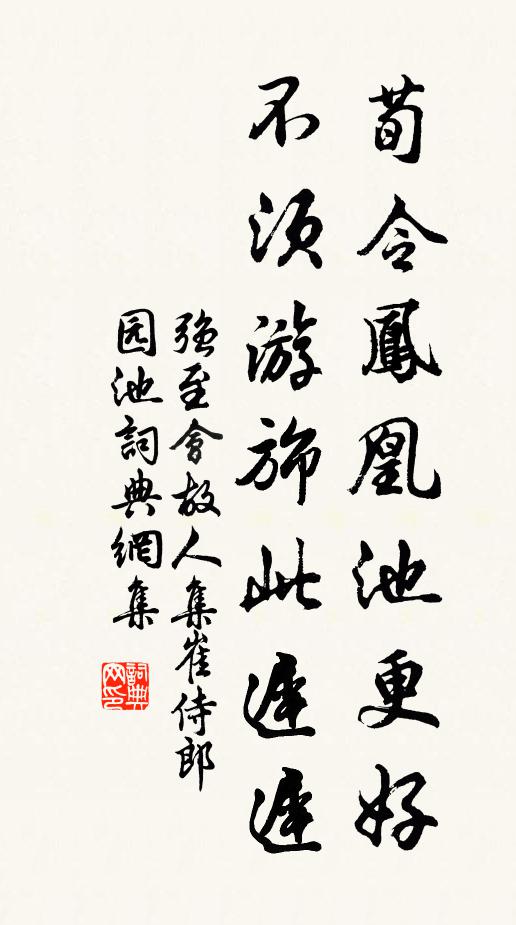 荀令鳳凰池更好
不須游旆此遲遲
強至會故人集崔侍郎
园池詞典網集
詞典
网印